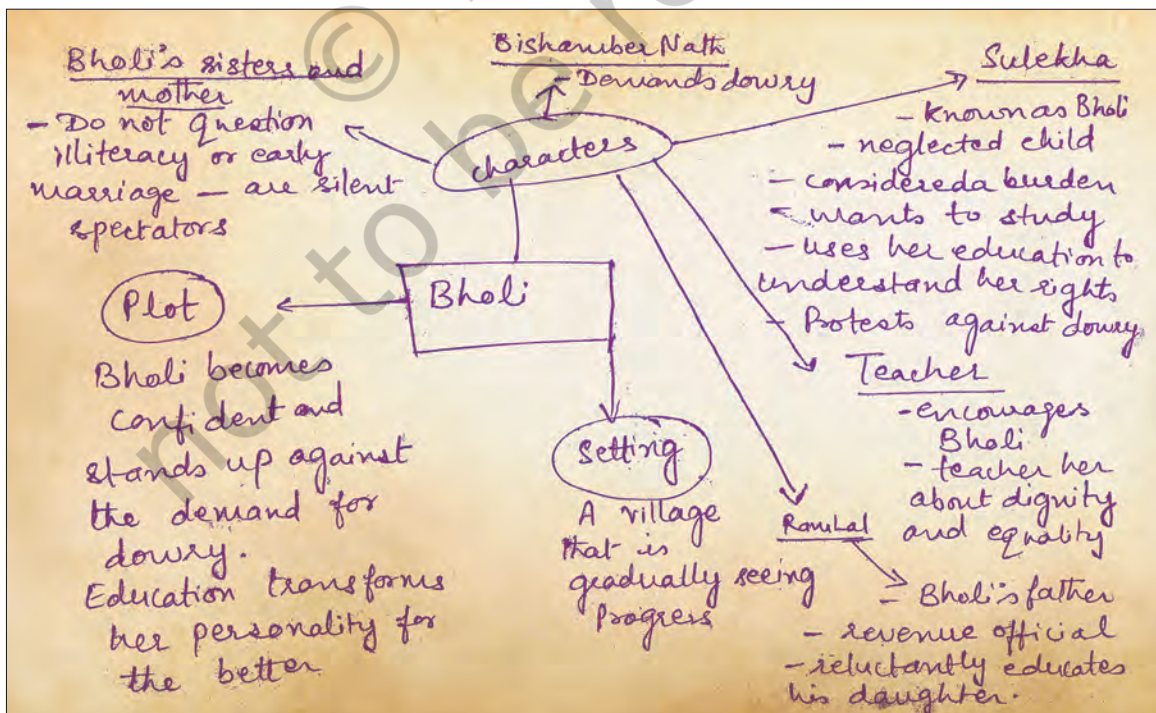 Bholi's sisters and
mother
- Do not question
illiteracy or early
marriage — are silent
spectators
Bishamber Nath
- Demands dowry
Characters
Sulekha
- Known as Bholi
- neglected child
- considered a burden
- wants to study
- uses her education to
understand her rights
- Protests against dowry
Bholi
Plot
Bholi becomes
confident and
stands up against
the demand for
dowry.
Education transforms
her personality for
the better
Setting
A village
that is
gradually seeing
Progress
Teacher
- encourages
Bholi
- teacher her
about dignity
and equality
RamLal
- Bholi's father
- revenue official
- reluctantly educates
his daughter.
© 
not to be re